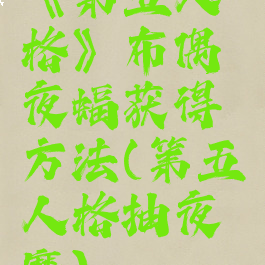 《第五人
格》布偶
夜蝠获得
方法(第五
人格抽夜
魇)